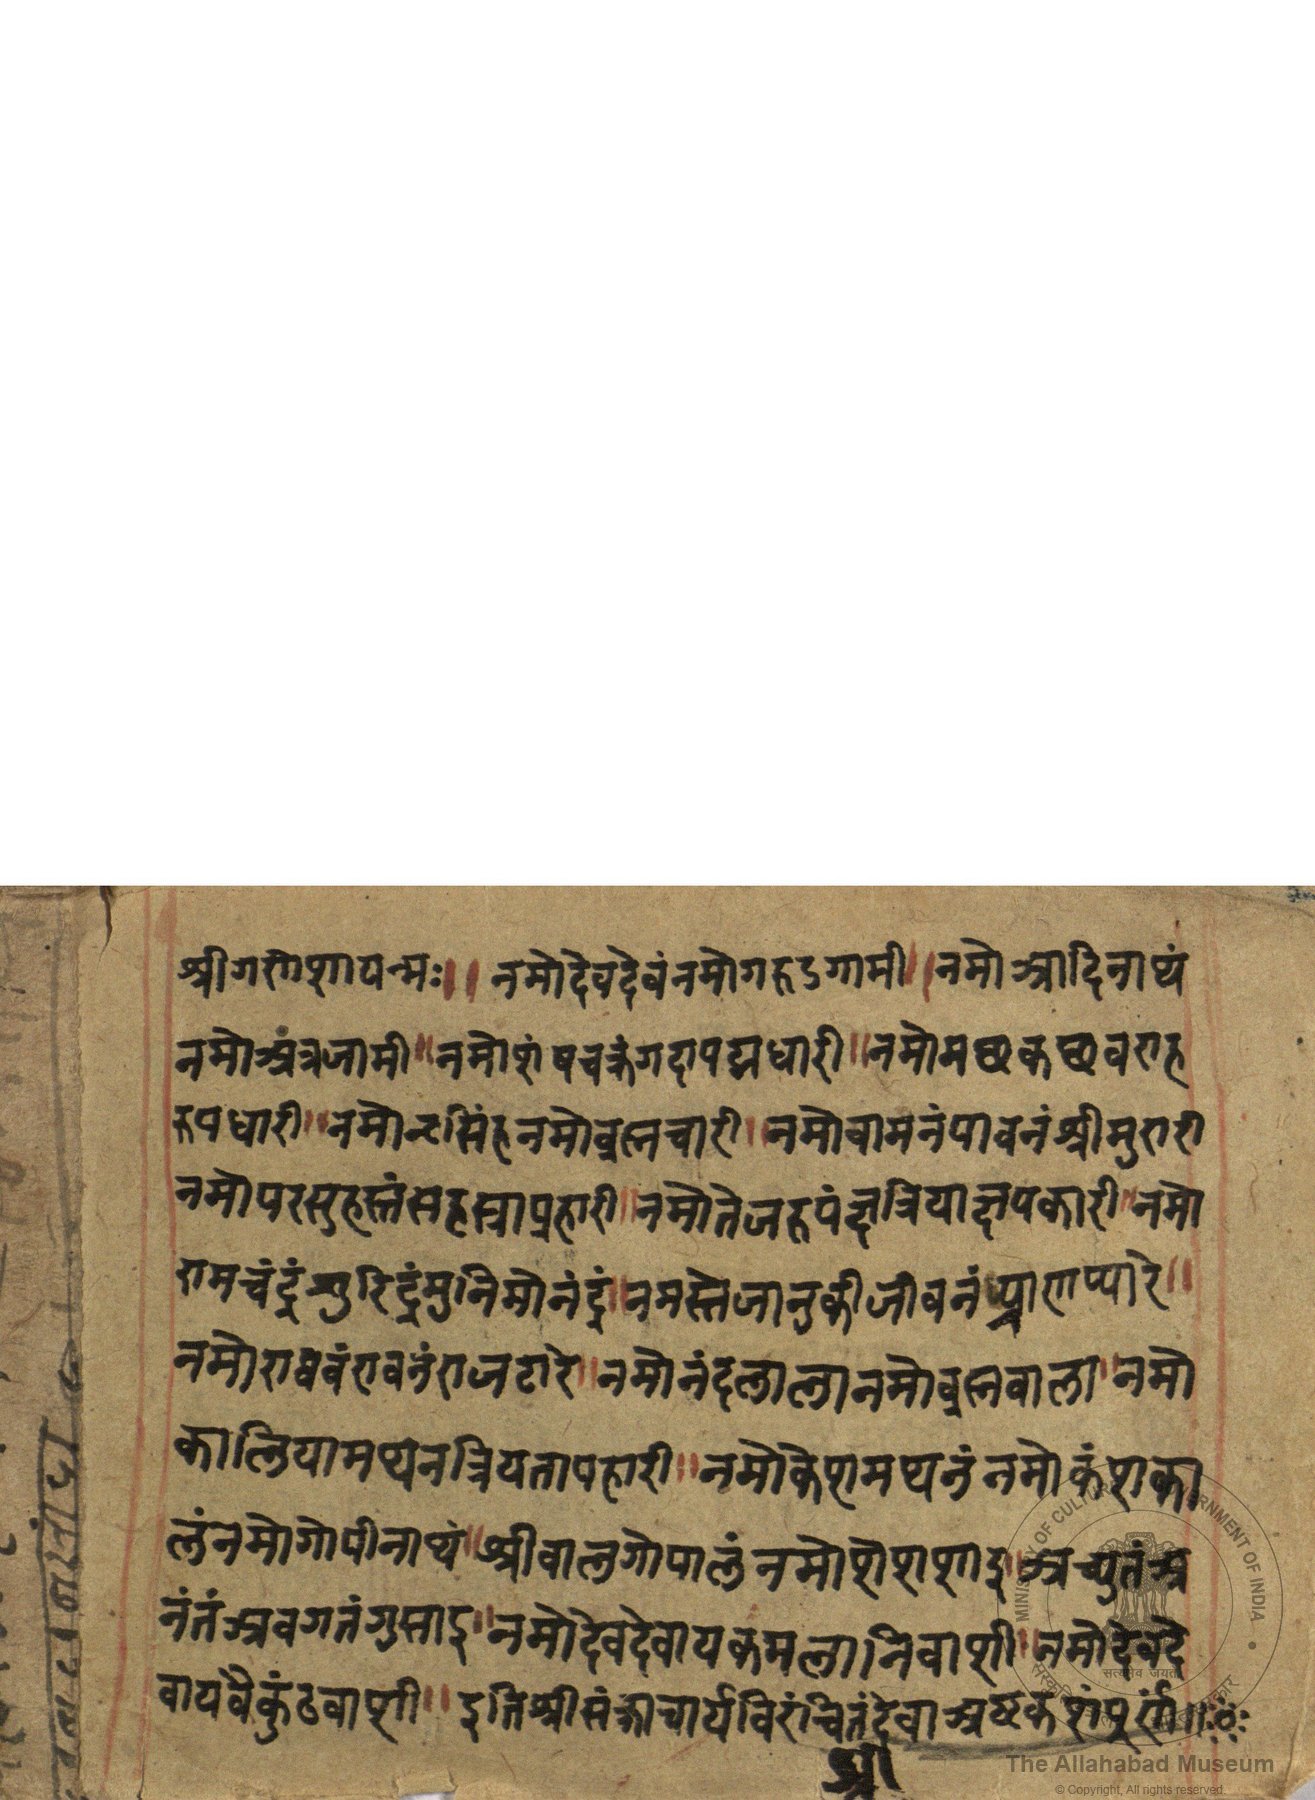 श्रीगणेशायन्मः।। नमोदेवदेवंनमोगरुडगामी।।नमोआदिनाथं
नमोअंत्रजामी।।नमोशंषचक्रंगदापद्मधारी।।नमोमछकछवराह
रुपधारी।।नमोनृसिंहनमोब्रह्मचारी।नमोवामनंपावनंश्रीमुरारी
नमोपरसुहस्तंसहस्त्राप्रहारी।।नमोतेजरुपंक्षत्रियाक्षपकारी।।नमो
रामचंद्रंसुरिंद्रंमुनिमोनंद्रं।।नमस्तेजानुकीजीवनंप्राणप्यारे।।
नमोराघवंरावनंराजटारे।।नमोनंदलालानमोब्रह्मबाला।नमो
कालियामथनत्रियतापहारी।।नमोकेशमथनंनमोकंशका
लंनमोगोपीनाथं।।श्रीबालगोपालंनमोशेशशाइ।अच्युतंअ
नंतंअवगतंगुसाइ।।नमोदेवदेवायकमलानिवाशी।।नमोदेवदे
वायवैकुंठवाशी।। इतिश्रीसंक्राचार्यविरंचितंदेवाअष्टकंशंपूर्णं।।
श्री
MINISTRY OF CULTURE GOVERNMENT OF INDIA
सत्यमेव जयते
The Allahabad Museum
© Copyright, All rights reserved.